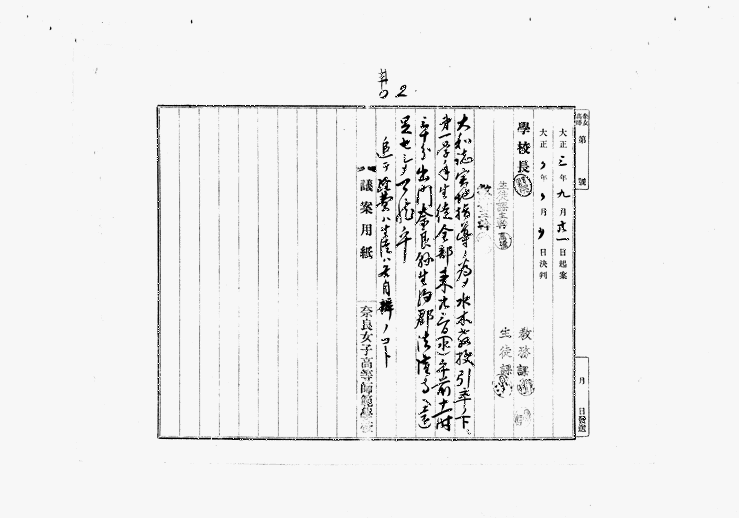 井口 2
奈女高師 第 號
月 日發送
大正 三 年 九 月 廿一 日起案
大正 〃 年 〃 月 〃 日決判
學校長
教務課
生徒課
大和誌実地指導ノ為メ水木教授引率ノ下ニ
第一学年生徒全部来廿三日(水)午前十一時
三十分出門奈良縣生駒郡法隆寺ヘ遣
追テ経費ハ生徒ハ各自辨ノコト
議案用紙
奈良女子高等師範學校